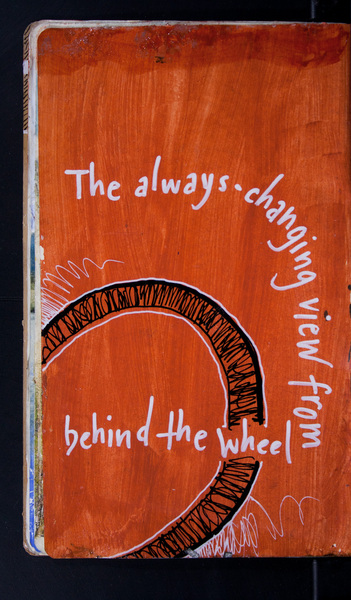 The always-changing view from
behind the wheel